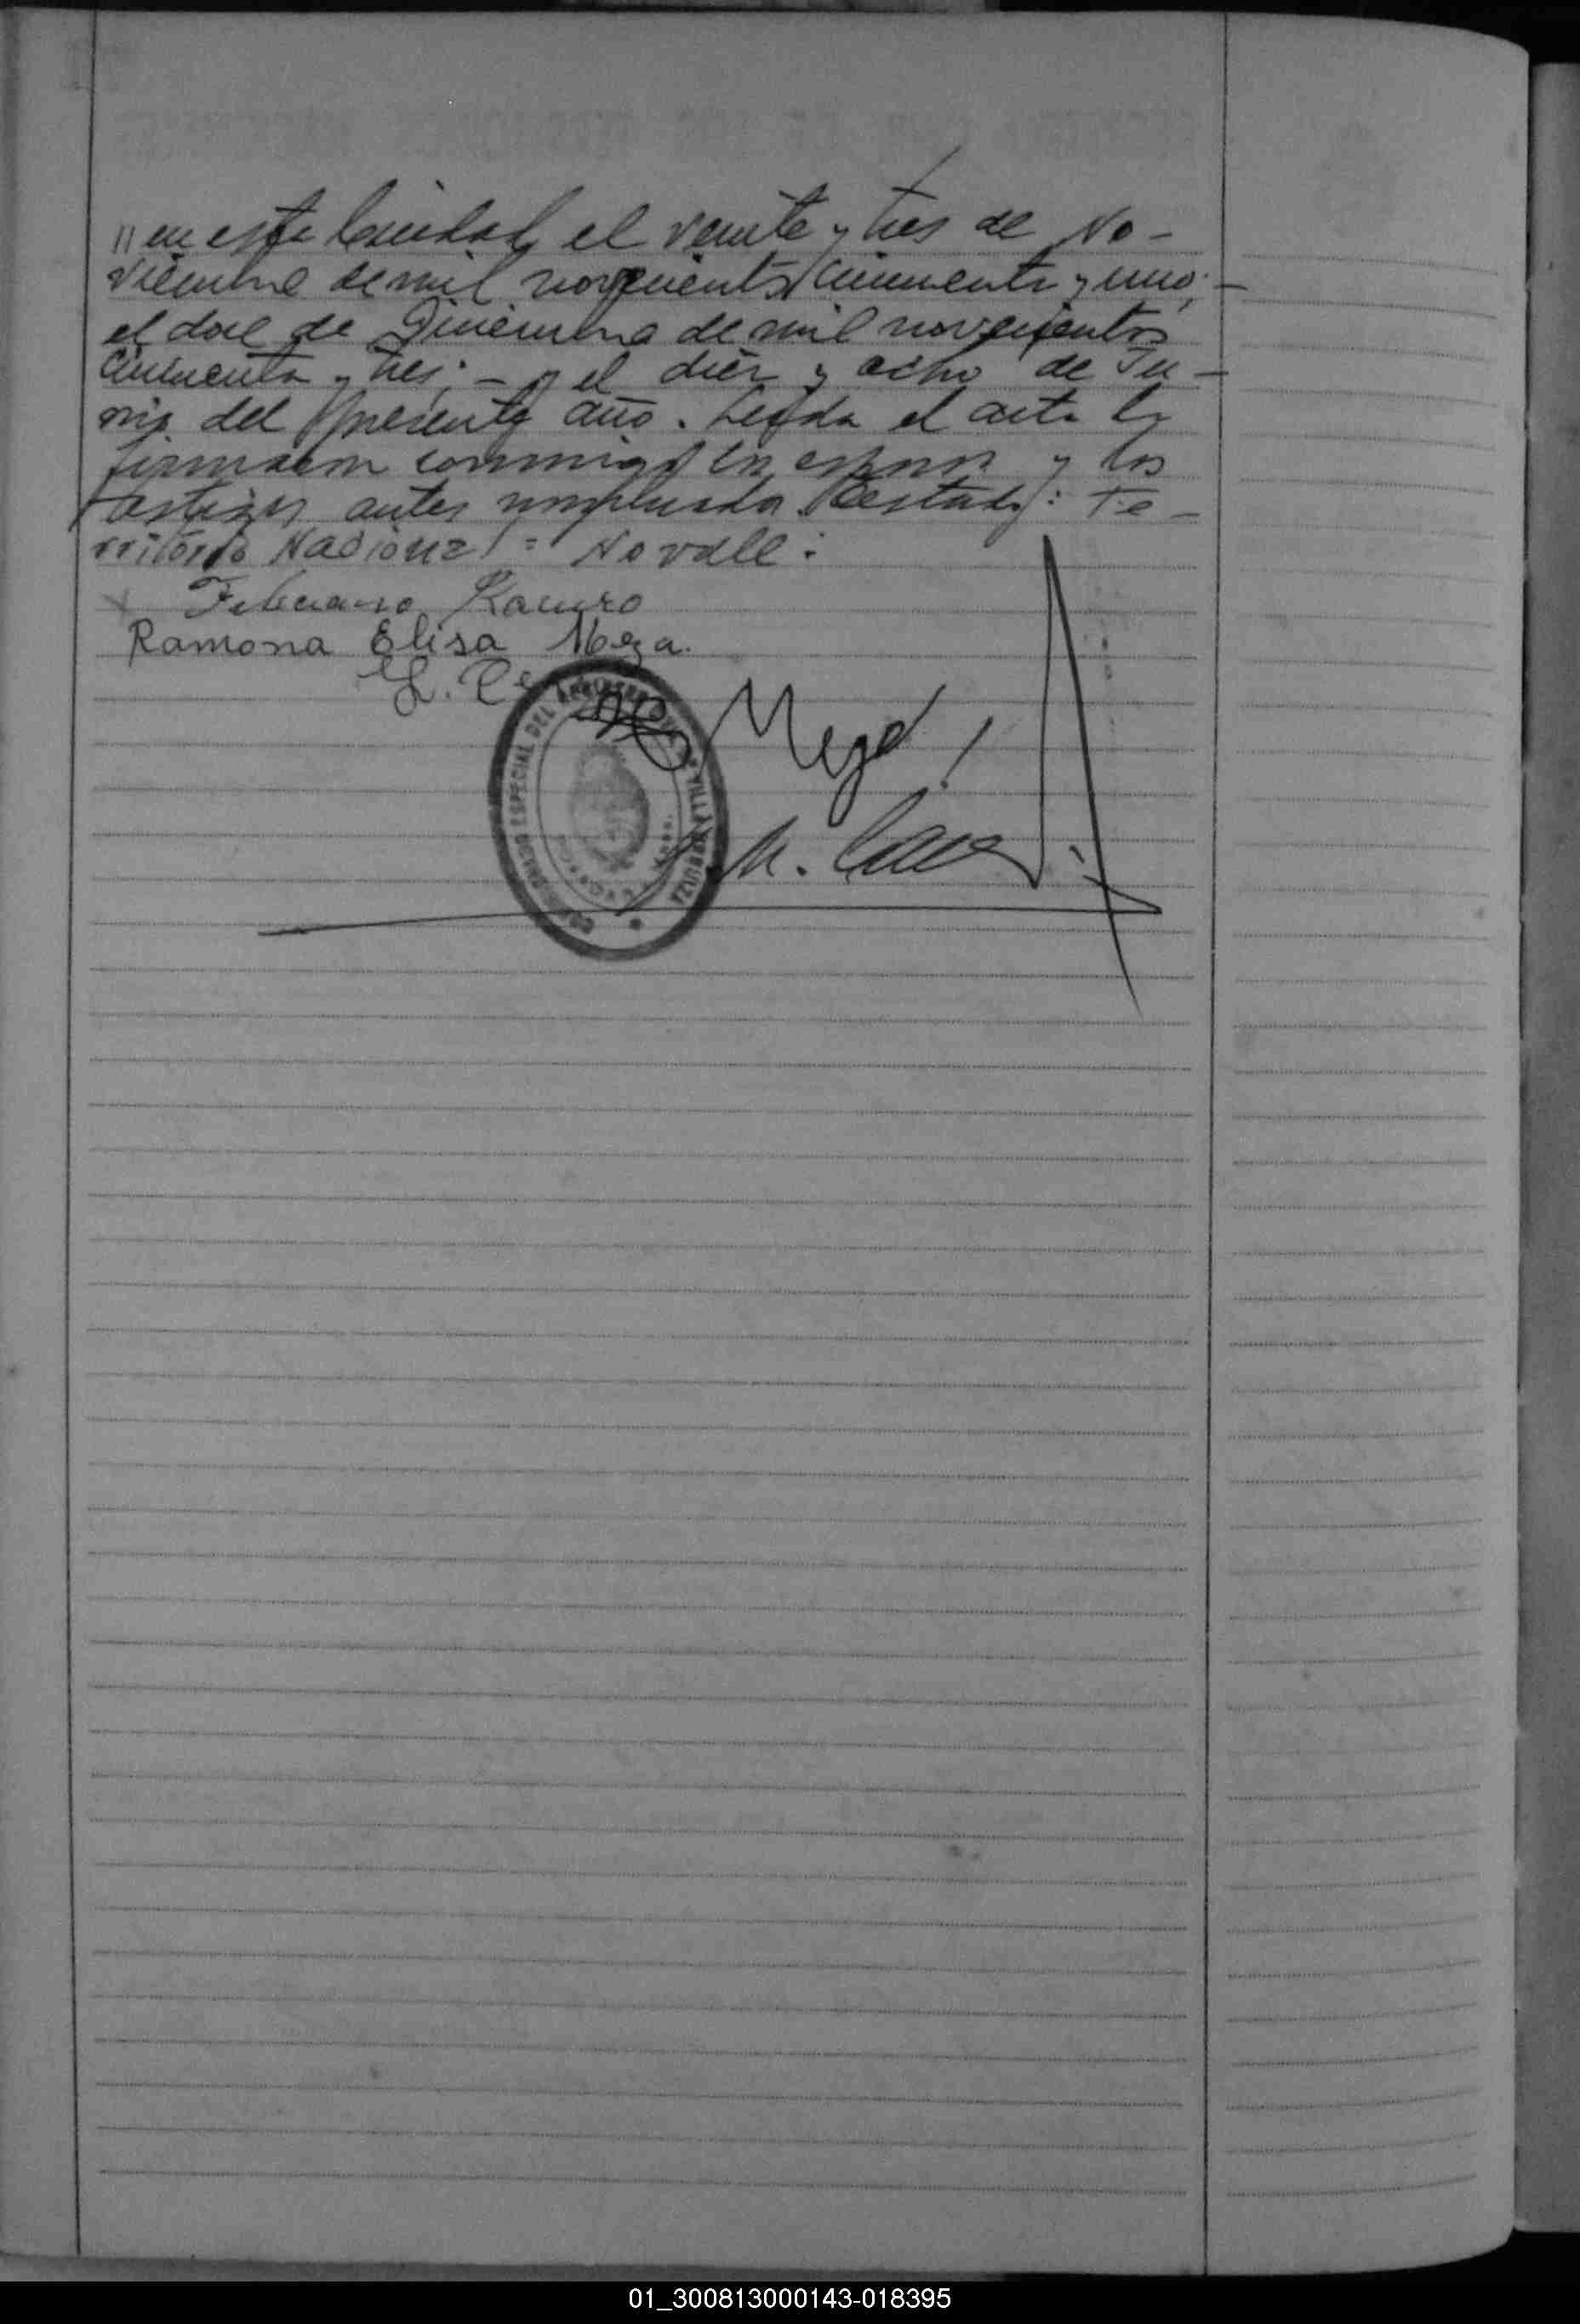 // en esta Ciudad, el veinte y tres de No-
viembre de mil novecientos cincuenta y uno; -
el doce de Diciembre de mil novecientos
cincuenta y tres; - y el diez y ocho de Ju-
nio del presente año. Leída el acta la
firmaron conmigo los esposos y los
testigos antes nombrados. Testado: Te-
rritorio Nacional = No vale:
Feliciano Ramiro
Ramona Elisa Meza.
Meza
M.
ESPECIAL DEL
01_300813000143-018395